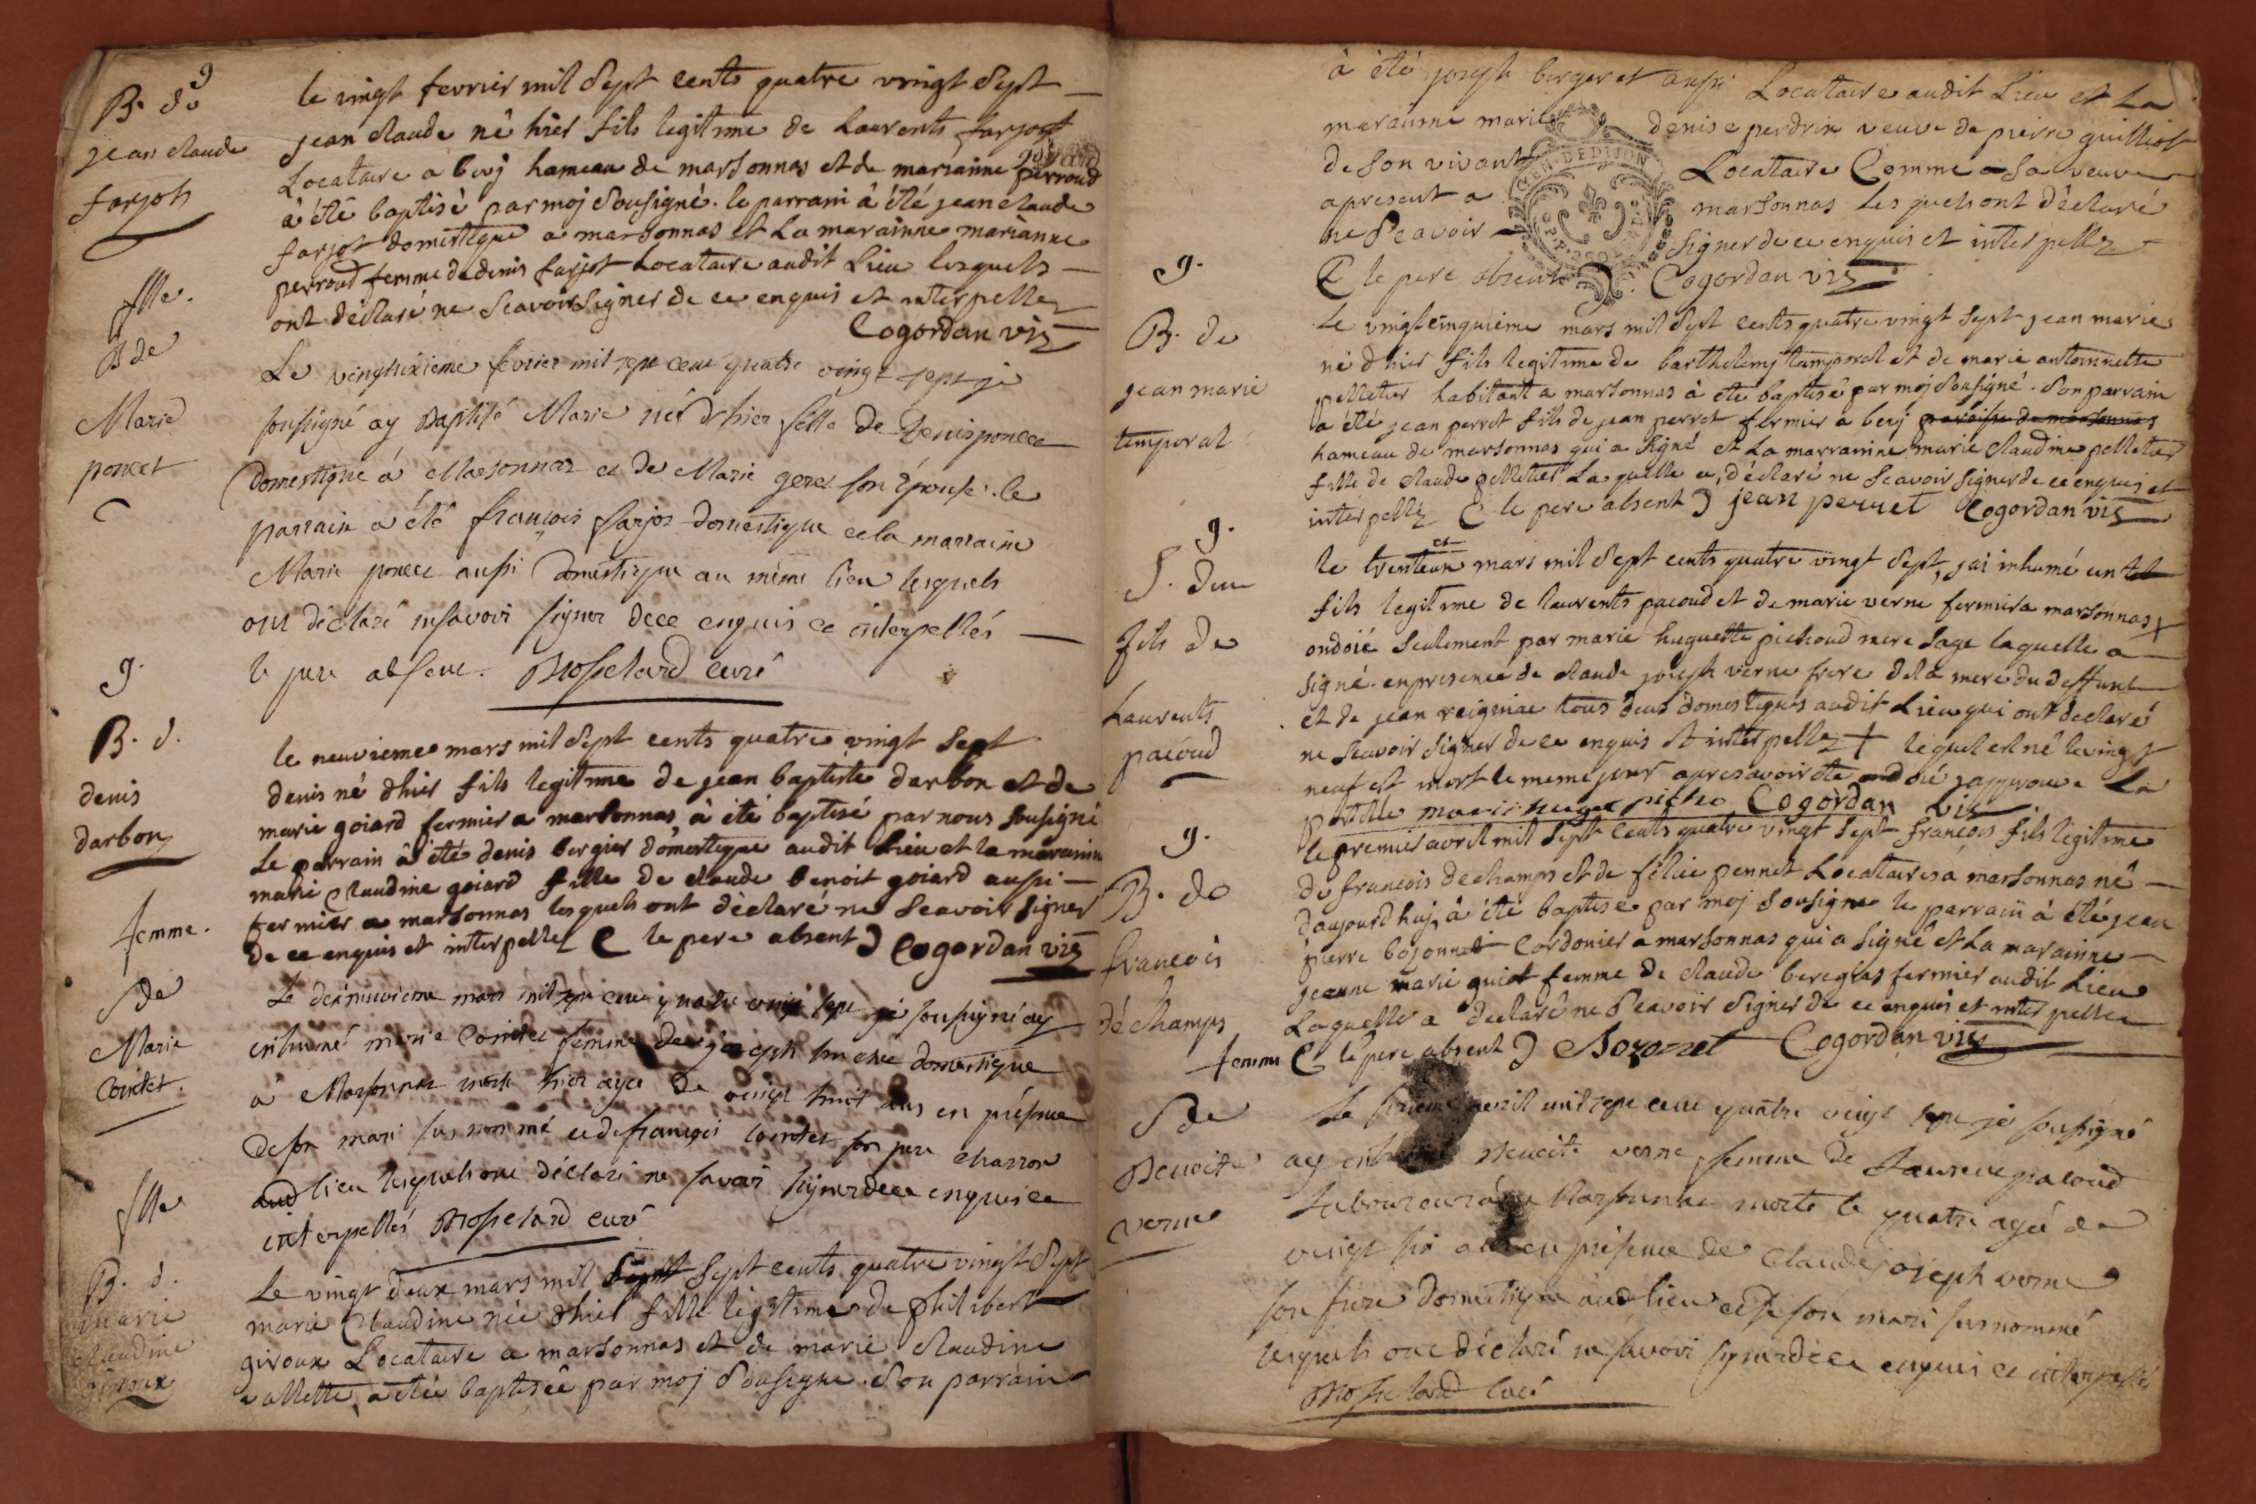 g
B. de
jean claude
farjot
le vingt fevrier mil Sept cents quatre vingt Sept
jean claude né hier fils legitime de Laurents farjot
Locataire a bevj hameau de marsonnas et de marianne perroud
à été baptisé par moj Sousigné. le parrain à été jean claude
farjot domestique a marsonnas et La marainne marianne
perroud femme de denis farjot Locataire audit Lieu lesquels
ont déclaré ne Scavoir Signer de ce enquis et interpellez
Cogordan vis
fille.
B de
Marie
poncet
Le vingtsixieme fevrier mil sept cent quatre vingt sept je
soussigné ay Baptisé Marie née d'hier fille de Denis poncet
Domestique à Marsonnas et de Marie gerez son épouse. le
parrain a été françois farjot domestique et la marraine
Marie poncet aussi Domestique au même lieu lesquels
ont déclaré ne savoir signer de ce enquis et interpellés
le pere absent. Mosselard curé
g.
B. d.
denis
darbon
le neuvieme mars mil Sept cents quatre vingt Sept
denis né dhier fils legitime de jean baptiste darbon et de
marie goiard fermier a marsonnas à été baptisé par nous Sousigné
Le parrain à été denis bergier domestique audit Lieu et la marainne
marie claudine goiard fille de claude benoit goiard aussi
fermier a marsonnas lesquels ont déclaré ne Scavoir Signer
de ce enquis et interpellez ( le pere absent ) Cogordan vis
femme.
S de
Marie
Cointet.
Le dixneuvieme mars mil sept cent quatre vingt sept je soussigné ay
inhumé marie Cointet femme de joseph domestique
à Marsonnas morte hier agée de vingt huit ans en présence
de son mari susnommé et de françois Cointet son pere charron
aud lieu lesquels ont déclaré ne savoir signer de ce enquis et
interpellés Mosselard curé
fille
B. d.
marie
claudine
giroux
Le vingt deux mars mil Sept cents quatre vingt Sept
marie Claudine née dhier fille legitime de philibert
giroux Locataire a marsonnas et de marie Claudine
à été baptisée par moj Sousigné. Son parrain
à été joseph berger et aussi Locataire audit Lieu et La
marainne marie denise perdrix veuve de pierre guilliot
de Son vivant Locataire Comme Sa veuve
apresent a marsonnas Lesquels ont déclaré
ne Scavoir Signer de ce enquis et interpellez
( le pere absent ). Cogordan vis
GEN. DE DIJON
g.
B. de
jean marie
temporal
Le vingtcinquieme mars mil Sept cents quatre vingt Sept jean marie
né dhier fils legitime de barthelemj temporal et de marie antoinnette
pelletier habitant a marsonnas à été baptisé par moj Sousigné. Son parrain
a été jean perret fils de jean perret fermier a bevj paroisse de marsonnas
hameau de marsonnas qui a Signé et La marrainne marie claudine pelletier
fille de claude pelletier Laquelle a déclaré ne Scavoir Signer de ce enquis et
interpellez ( le pere absent ) jean perret Cogordan vis
g.
S. dun
fils de
Laurents
pacoud
le trente et un mars mil Sept cents quatre vingt Sept, jai inhumé un
fils legitime de laurents pacoud et de marie verne fermier a marsonnas +
ondoié Seulement par marie huguette pichoud mere Sage laquelle a
Signé. en presence de claude joseph verne frere de la mere du deffunt
et de jean tous deux domestiques audit Lieu qui ont declaré
ne Scavoir Signer de ce enquis et interpellez + lequel est né le vingt
neuf est mort le meme jour apres avoir été ondoié japprouve La
Cogordan vis
g.
B. de
francois
déchamps
le premier avril mil Sept cents quatre vingt Sept francois fils legitime
de francois dechamps et de felicie pennet Locataires a marsonnas né
daujourdhuj, à été baptisé par moj Sousigné le parrain à été jean
pierre bozonnet Cordonier a marsonnas qui a Signé et La marainne
jeanne marie guiot femme de claude fermier audit Lieu
Laquelle a declaré ne Scavoir Signer de ce enquis et interpellee
( le pere absent ) Bozonnet Cogordan vis
femme
S de
Benoite
verne
Le avril mil sept cent quatre vingt sept je soussigné
ay Benoite verne femme de Laurent pacoud
Laboureur à Marsonnas morte le quatre agée de
vingt six ans en présence de Claude joseph verne
son frere domestique aud lieu et de son mari susnommé
lesquels ont déclaré ne savoir signer de ce enquis et interpellés
Mosselard curé